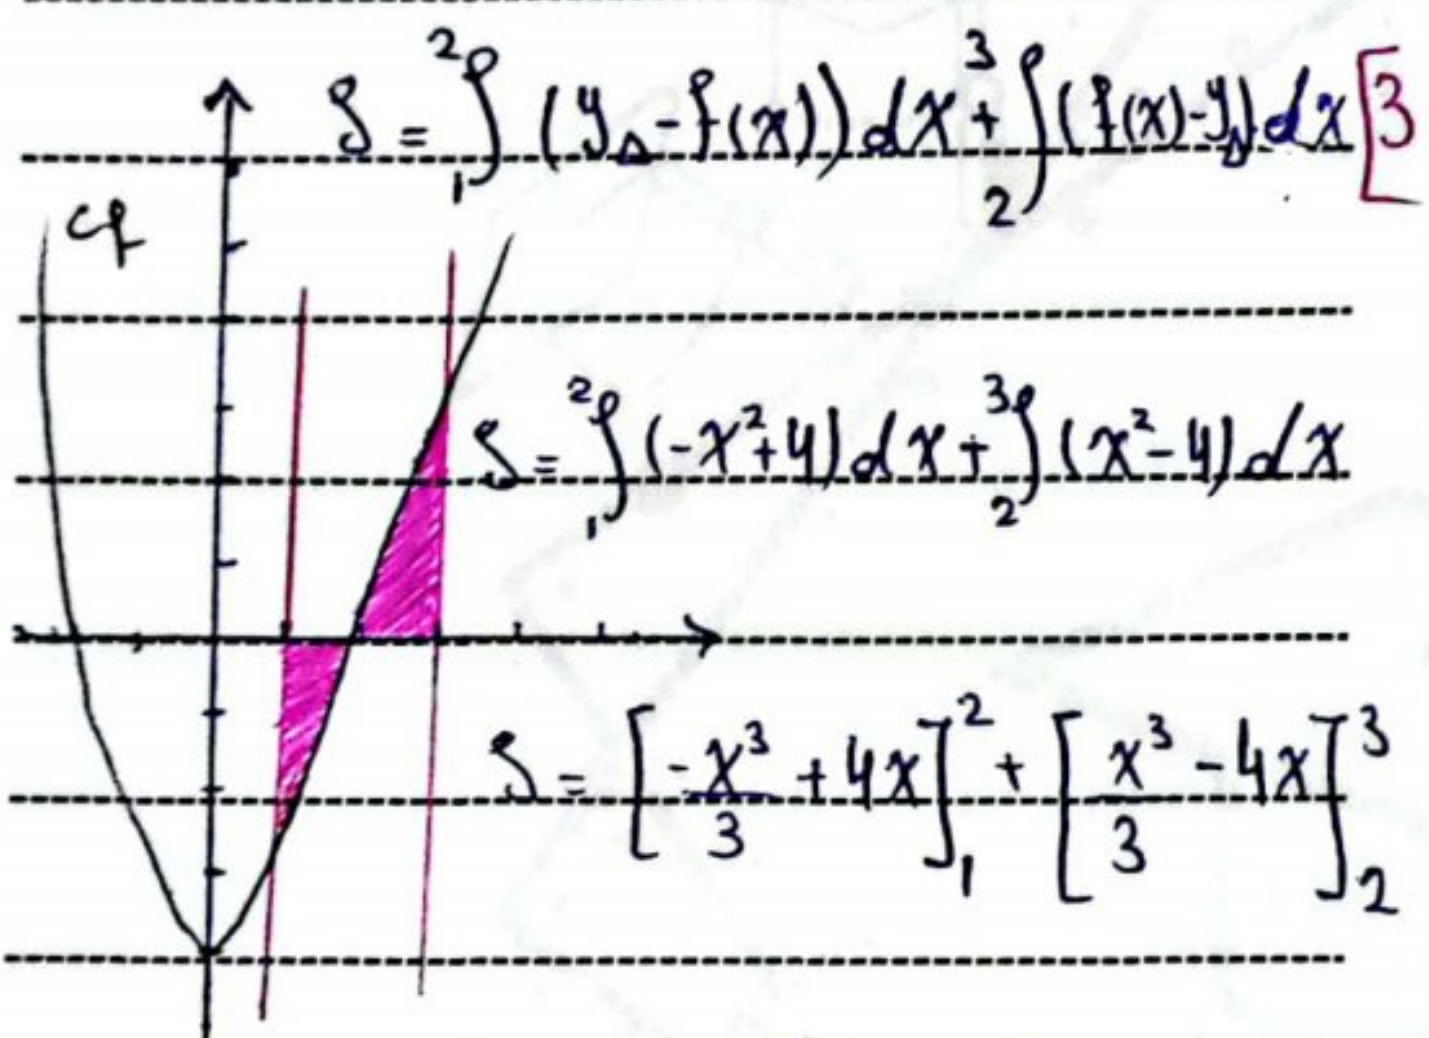 S = ₁∫² (y_Δ - f(x)) dx + ₂∫³ (f(x) - y_Δ) dx [3
Cf
S = ₁∫² (-x² + 4) dx + ₂∫³ (x² - 4) dx
S = [-x³/3 + 4x]₁² + [x³/3 - 4x]₂³